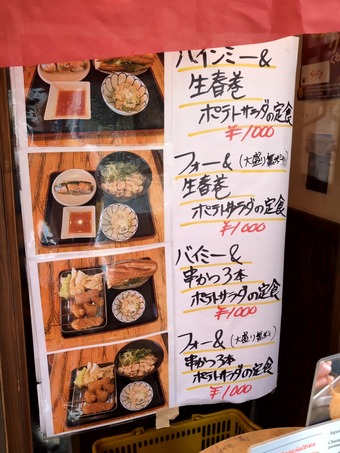 バインミー&
生春巻
ポテトサラダの定食
¥1000
フォー&(大盛り無料)
生春巻
ポテトサラダの定食
¥1000
バイミー&
串かつ3本
ポテトサラダの定食
¥1000
フォー&
串かつ3本
ポテトサラダの定食
¥1000